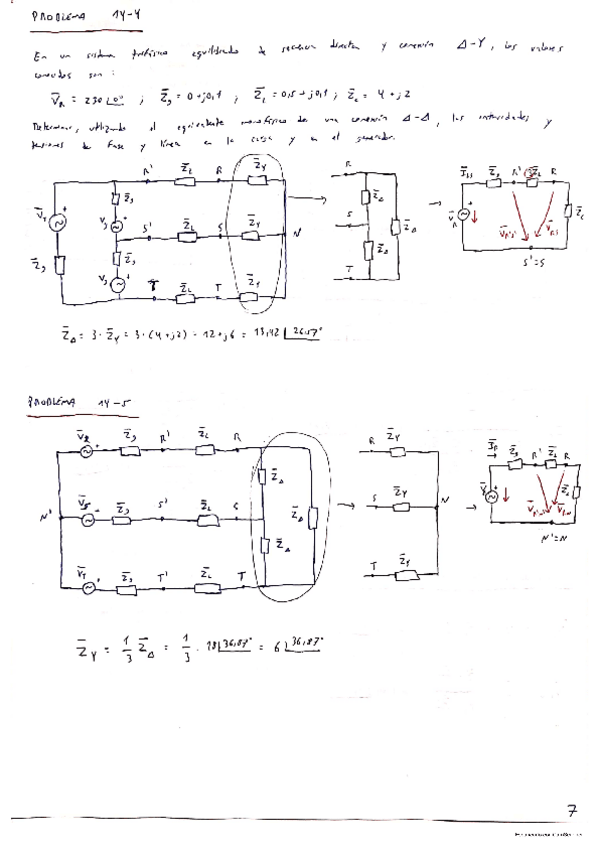 PROBLEMA 14-4
En un sistema trifásico equilibrado de secuencia directa y conexión Δ-Y, los valores
conocidos son:
V̄R = 230∠0° ; Z̄g = 0+j0,1 ; Z̄L = 0,5+j0,1 ; Z̄c = 4+j2
Determinar, utilizando el equivalente monofásico de una conexión Δ-Δ, las intensidades y
tensiones de fase y línea en la carga y en el generador.
R' Z̄L R Z̄Y
V̄T Z̄g Vg S' Z̄L S Z̄Y N
Z̄g Z̄g Vg T Z̄L T Z̄Y
R S T Z̄Δ Z̄Δ Z̄Δ
Z̄g R' 3Z̄L R
V̄R Z̄c
S'=S
Z̄Δ = 3·Z̄Y = 3·(4+j2) = 12+j6 = 13,42∠26,57°
PROBLEMA 14-5
V̄R Z̄g R' Z̄L R
N' V̄S Z̄g S' Z̄L S Z̄Δ Z̄Δ Z̄Δ
V̄T Z̄g T' Z̄L T
R Z̄Y
S Z̄Y N
T Z̄Y
Z̄g R' Z̄L R
N'=N
Z̄Y = 1/3 Z̄Δ = 1/3 · 18∠36,87° = 6∠36,87°
7